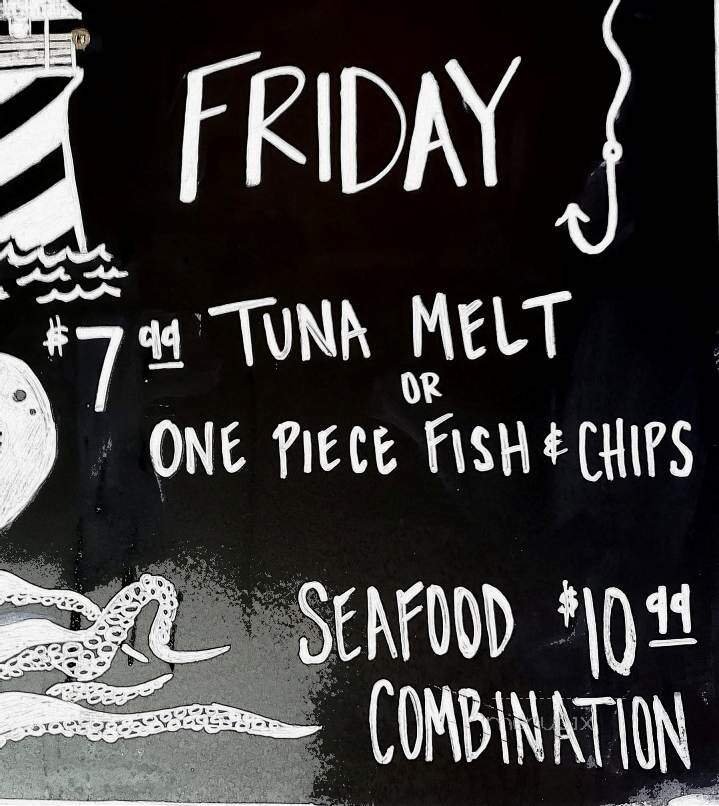 FRIDAY
$7.99 TUNA MELT
OR
ONE PIECE FISH & CHIPS
SEAFOOD $10.99
COMBINATION